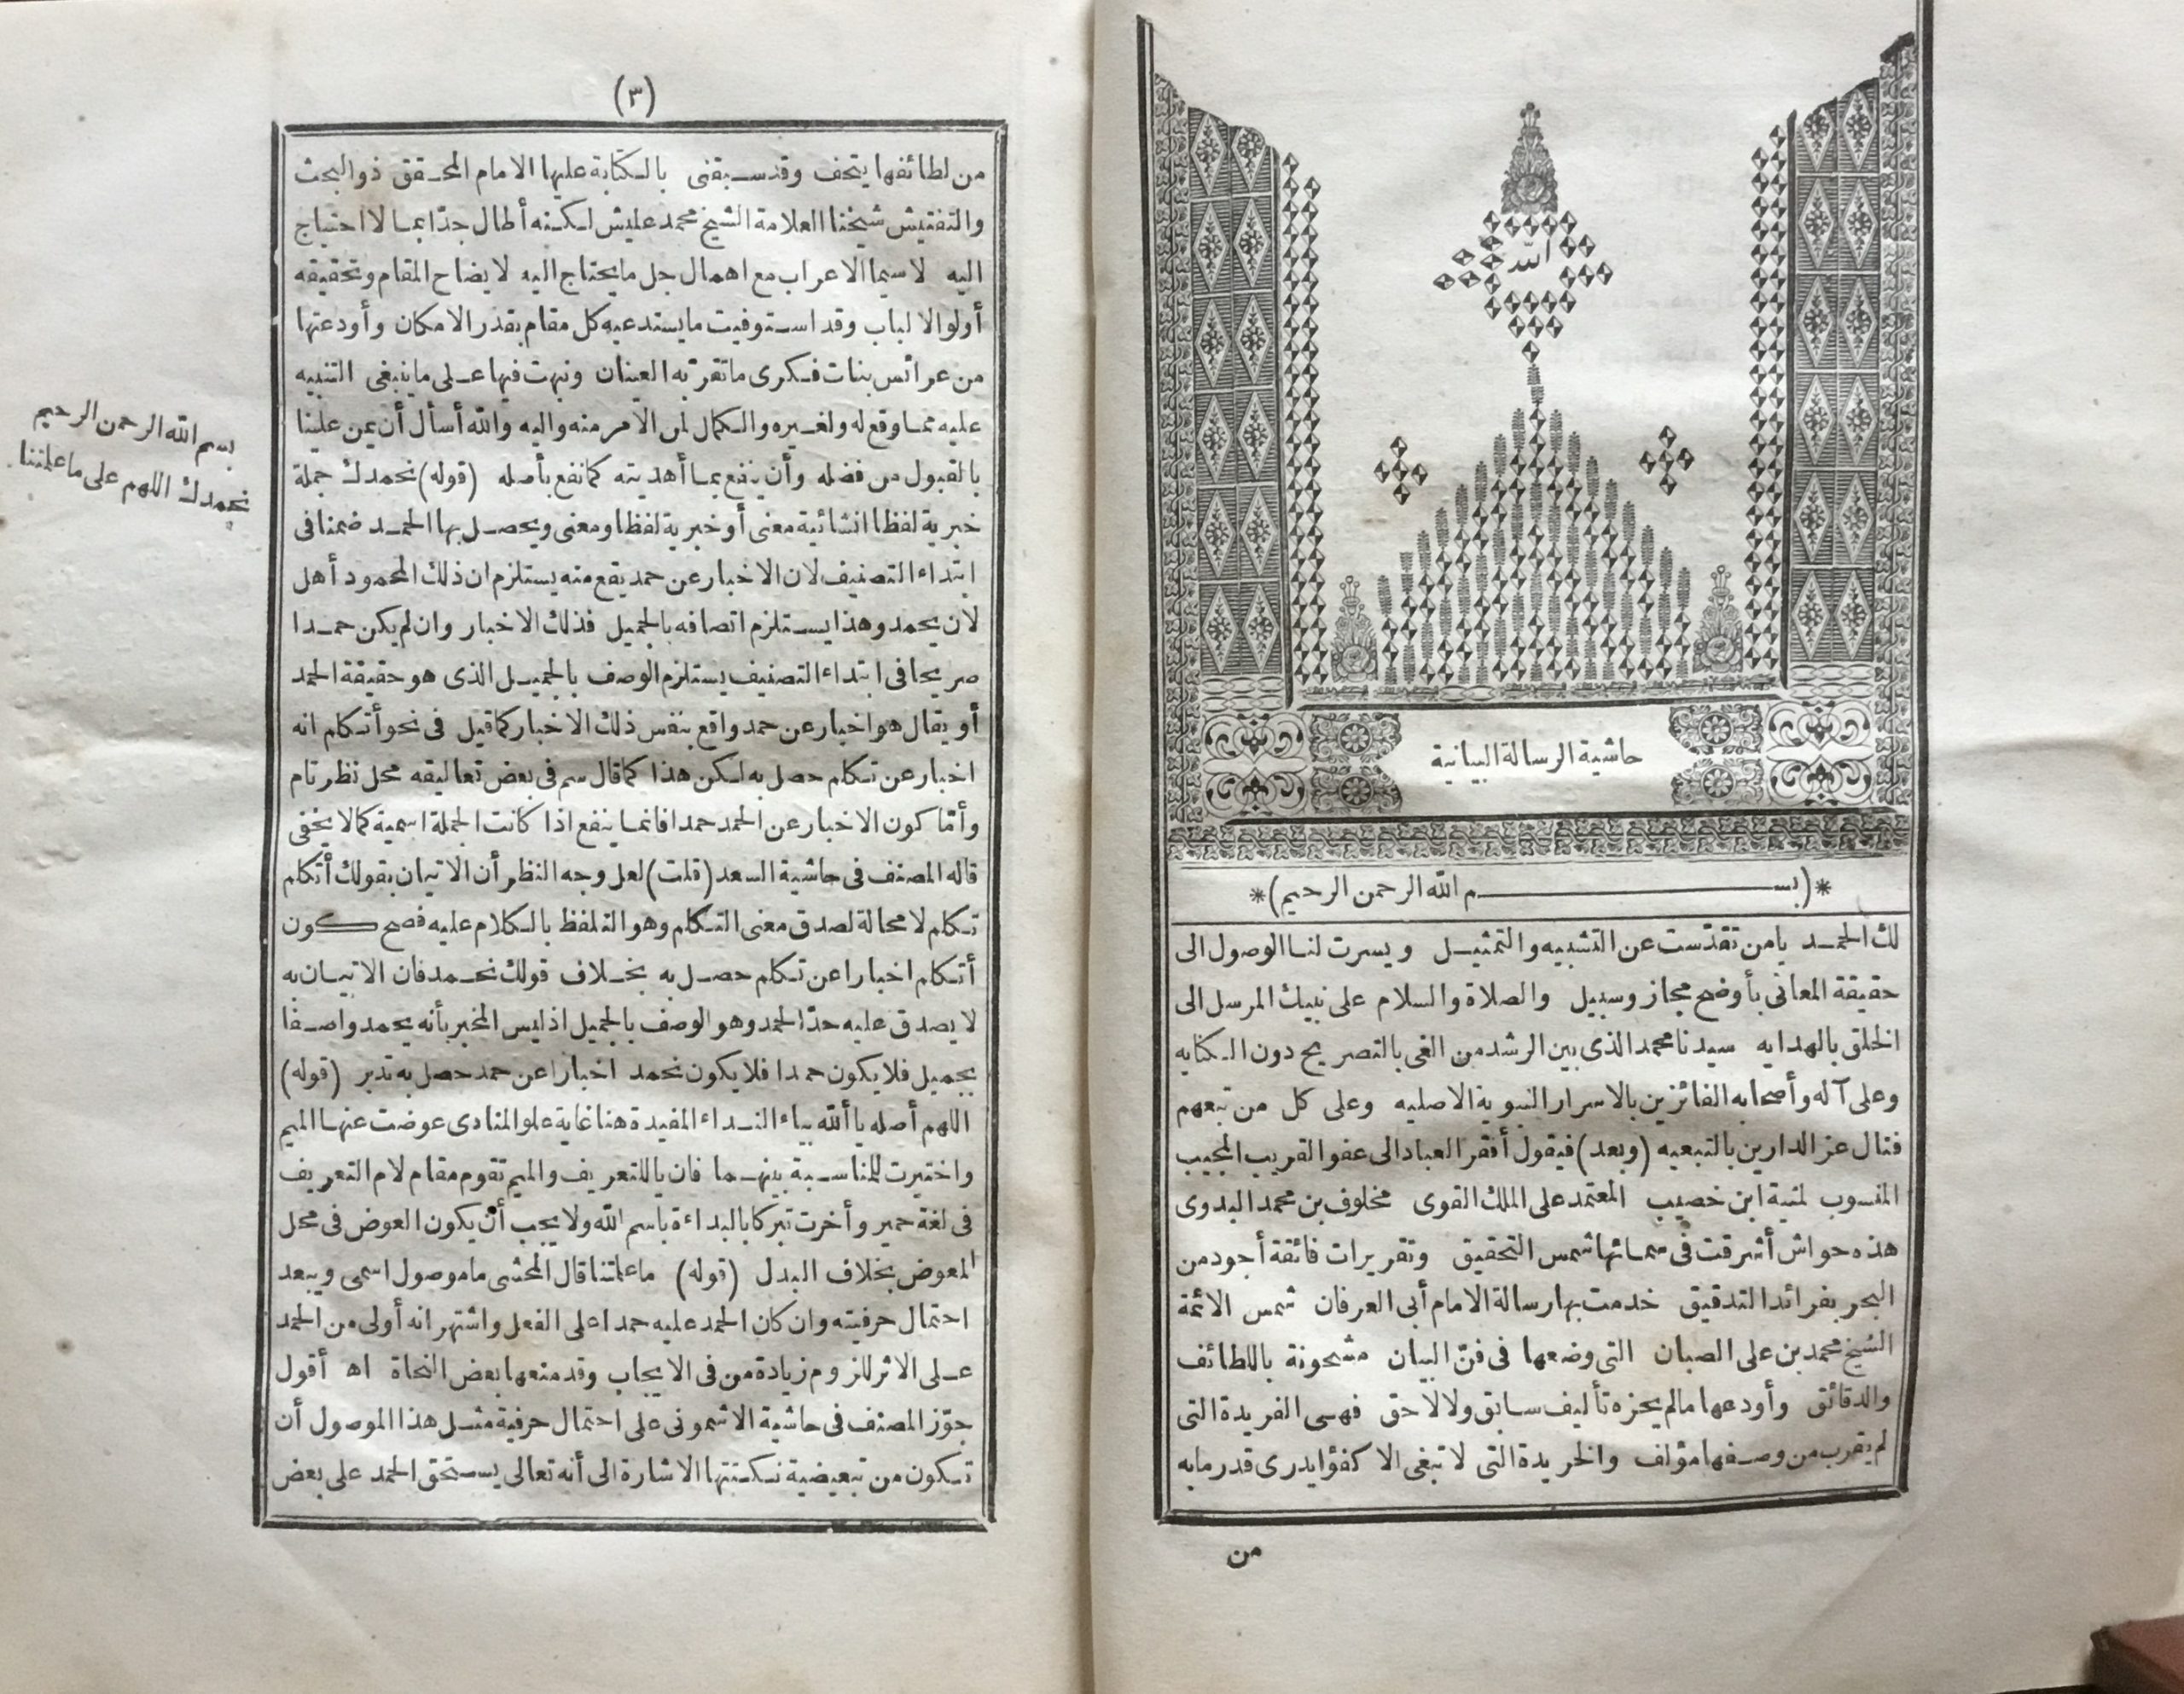 الله
حاشية الرسالة البيانية
*(بسم الله الرحمن الرحيم)*
لك الحمد يامن تقدّست عن التشبيه والتمثيل ويسرت لنا الوصول الى
حقيقة المعانى بأوضح مجاز وسبيل والصلاة والسلام على نبيك المرسل الى
الخلق بالهدايه سيدنا محمد الذى بين الرشد من الغى بالتصريح دون الكنايه
وعلى آله وأصحابه الفائزين بالاسرار النبوية الاصليه وعلى كل من تبعهم
فنال عز الدارين بالتبعيه (وبعد) فيقول أفقر العباد الى عفو القريب المجيب
المنسوب لمنية ابن خصيب المعتمد على الملك القوى مخلوف بن محمد البدوى
هذه حواش أشرقت فى سمائها شمس التحقيق وتقريرات فائقة أجود من
البحر بفرائد التدقيق خدمت بها رسالة الامام أبى العرفان شمس الائمة
الشيخ محمد بن على الصبان التى وضعها فى فنّ البيان مشحونة باللطائف
والدقائق وأودعها مالم يحزه تأليف سابق ولا لاحق فهى الفريدة التى
لم يقرب من وصفها مؤلف والخريدة التى لا تبغى الا كفؤا يدرى قدر مابه
من
(٣)
من لطائفها يتحف وقد سبقنى بالكتابة عليها الامام المحقق ذو البحث
والتفتيش شيخنا العلامة الشيخ محمد عليش لكنه أطال جدّا بما لا احتياج
اليه لاسيما الاعراب مع اهمال جل ما يحتاج اليه لايضاح المقام وتحقيقه
أولو الالباب وقد استوفيت ما يستدعيه كل مقام بقدر الامكان وأودعتها
من عرائس بنات فكرى ما تقرّ به العينان ونبهت فيها على ما ينبغى التنبيه
عليه مما وقع له ولغيره والكمال لمن الامر منه واليه والله أسأل أن يمن علينا
بالقبول من فضله وأن ينفع بما أهديته كما نفع بأصله (قوله) نحمدك جملة
خبرية لفظا انشائية معنى أو خبرية لفظا ومعنى ويحصل بها الحمد ضمنا فى
ابتداء التصنيف لان الاخبار عن حمد يقع منه يستلزم ان ذلك المحمود أهل
لان يحمد وهذا يستلزم اتصافه بالجميل فذلك الاخبار وان لم يكن حمدا
صريحا فى ابتداء التصنيف يستلزم الوصف بالجميل الذى هو حقيقة الحمد
أو يقال هو اخبار عن حمد واقع بنفس ذلك الاخبار كما قيل فى نحو أتكلم انه
اخبار عن تكلم حصل به لكن هذا كما قال سم فى بعض تعاليقه محل نظر تام
وأمّا كون الاخبار عن الحمد حمدا فانما ينفع اذا كانت الجملة اسمية كما لا يخفى
قاله المصنف فى حاشية السعد (قلت) لعل وجه النظر أن الاتيان بقولك أتكلم
تكلم لا محالة لصدق معنى التكلم وهو التلفظ بالكلام عليه فصح كون
أتكلم اخبارا عن تكلم حصل به بخلاف قولك نحمد فان الاتيان به
لا يصدق عليه حدّ الحمد وهو الوصف بالجميل اذ ليس المخبر بأنه يحمد واصفا
بجميل فلا يكون حمدا فلا يكون نحمد اخبارا عن حمد حصل به تدبر (قوله)
اللهم أصله يا ألله بياء النداء المفيدة هنا غاية علو المنادى عوضت عنها الميم
واختيرت للمناسبة بينهما فان يا للتعريف والميم تقوم مقام لام التعريف
فى لغة حمير وأخرت تبركا بالبداءة باسم الله ولا يجب أن يكون العوض فى محل
المعوض بخلاف البدل (قوله) ما علمتنا قال المحشى ما موصول اسمى ويبعد
احتمال حرفيته وان كان الحمد عليه حمدا على الفعل واشتهر انه أولى من الحمد
على الاثر للزوم زيادة من فى الايجاب وقد منعها بعض النحاة اه أقول
جوّز المصنف فى حاشية الاشمونى على احتمال حرفية مثل هذا الموصول أن
تكون من تبعيضية نكتتها الاشارة الى أنه تعالى يستحق الحمد على بعض
بسم الله الرحمن الرحيم
نحمدك اللهم على ما علمتنا